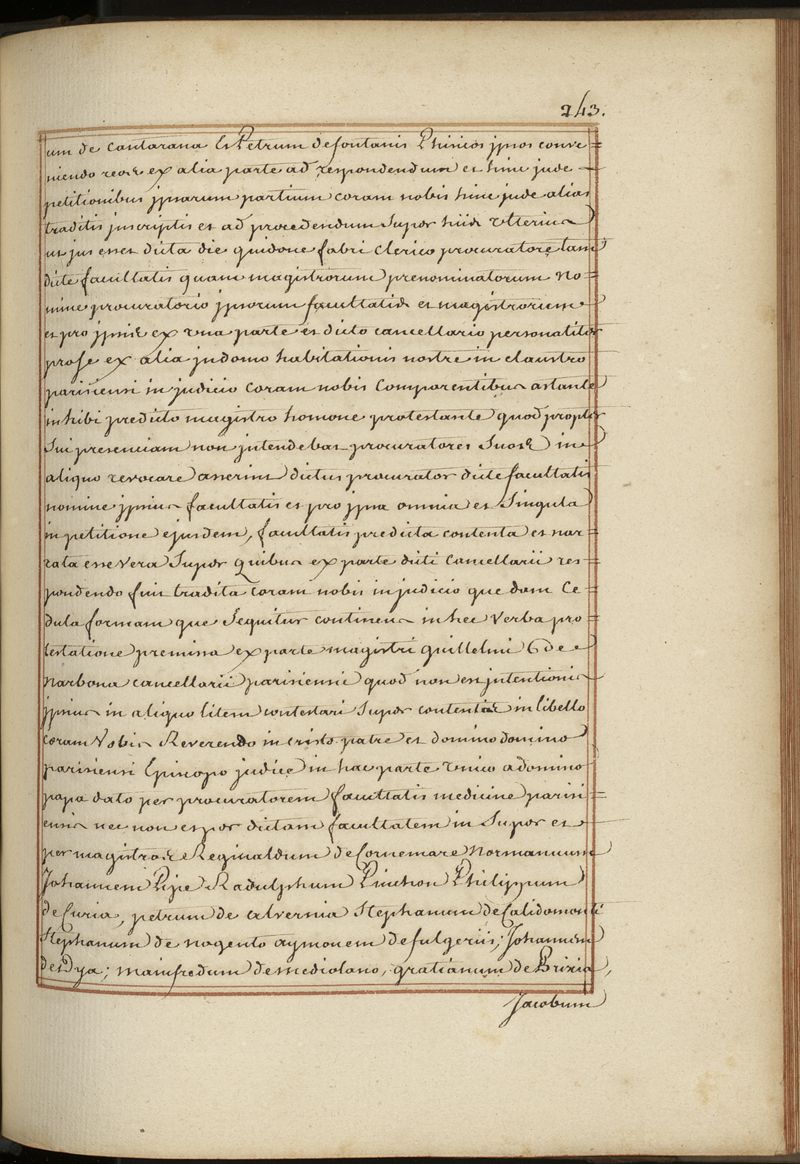 243.
um de Cantarana Et Petrum defontanis Phinios jpsos conve
niendo reos ex alia parte ad respondendum et hinc jnde
petitionibus jpsarum partium coram nobis hinc jnde alias
traditis jnscriptis et ad procedendum Super hiis Vlterius
ut jus esset dicta die guidone fabri Clerico procuratore tam
dicte facultatis quam magistrorum prenominatorum No
mine procuratorio jpsorum facultatis et magistrorum
et pro jpsis ex vna parte et dicto cancellario personaliter
prose ex alia jndomo habitationis nostre in claustro
parisiensi in judicio Coram nobis Comparentibus astante
inhibi predicto magistro homone protestante quod propter
Sui presenciam non jntendebat procuratores Suos in
aliquo revocare asserint dictus procurator dicte facultatis
nomine jpsius facultatis et pro jpsa omnia et Singula
in petitione ejusdem, facultatis predicta contenta et nar
rata esse Vera Super Quibus ex parte dicti Cancellarii res
pondendo fuit tradita Coram nobis in judicio que dam Ce
dula formam que Sequitur continens in hec Verba pro
testatione premissa ex parte magistri guillelmi 6 de
Narbona cancellarii parisiensis quod non est jntentionis
jpsius in aliquo litem contestari Super contentis in libello
Coram Vobis Reverendo in cristo patre et domino domino
parisiensi Episcopo judice in hac parte Vnico a domino
papa dato per procuratorem facultatis medicine parisi
ensis nec non et per dictam facultatem in Super et
per magistros Reginaldum de Cornemare Normannum
Johannem Pipe Radulphum Pinchon Philippum
de Curia, petrum de alvernia Stephanum de Calidomonte
Stephanum de nogento aymonem de fulgeriis; Johannem
de Dya; mainfredum de mediolano, gratianum de Brixia,
Jacobum